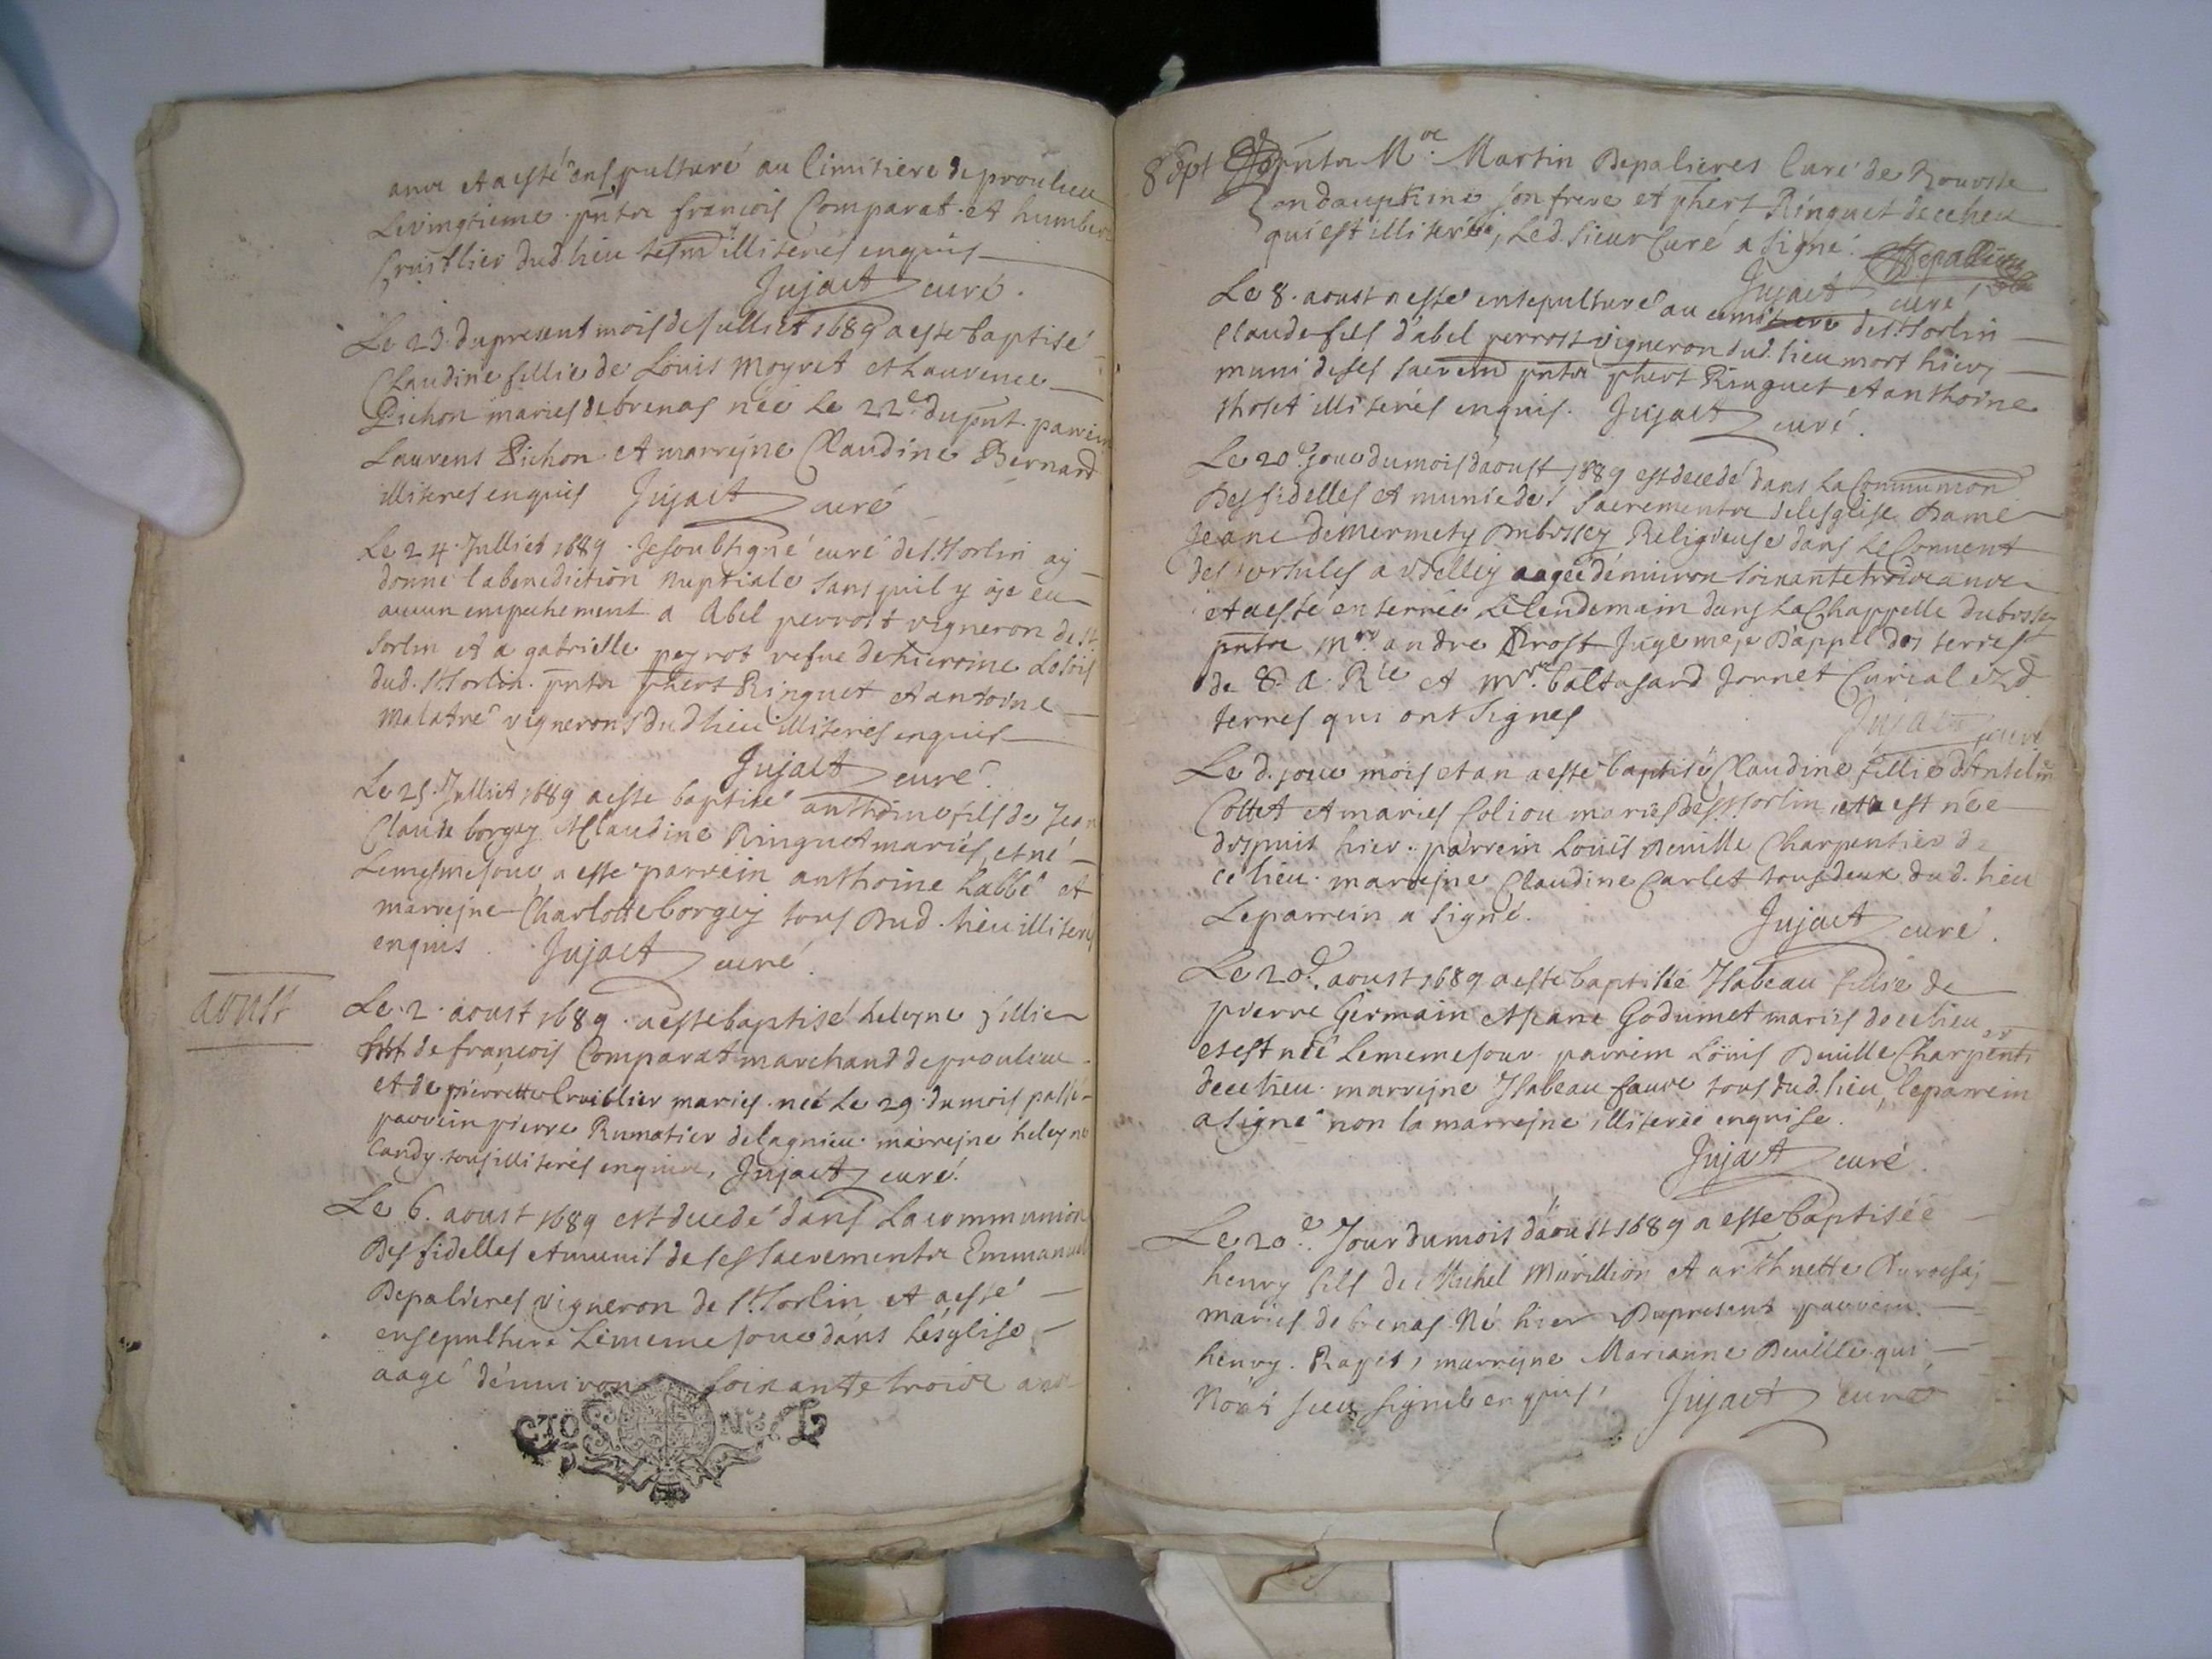 ance et a esté ensepulturé au Cimitiere de proulieu
Levingtieme pnts francois Comparat et humber
Cruiblier dud lieu tesm illiterés enquis
Jujact curé.
Le 23 du present mois de Julliet 1689 a este baptisé
Claudine fillie de Louis Moyret et Laurence
Pichon mariés de brenas née Le 22e du pnt. parrein
Laurens Pichon et marrejne Claudine Bernard
illiteres enquis Jujact curé
Le 24 Julliet 1689 Je soubsigné curé de St Sorlin aÿ
donné la benediction nuptiale sans quil y aje eu
aucun empechement a Abel perrost vigneron de St
Sorlin et a gabrielle peyrot vefue de hieroime
dud. St Sorlin. pnts phert Ringuet et antoine
Malatré vignerons dud lieu illiteres enquis
Jujact curé
Le 25 Julliet 1689 a este baptisé anthoine fils de Jean
Claude borgey et Claudine Ringuet mariés, et né
Lemesme jour, a este parrein anthoine Labbé et
marrejne Charlotte borgey tous dud. lieu illiterés
enquis. Jujact curé.
aoust
Le 2. aoust 1689. a este baptisé heleyne fillie
de francois Comparat marchand de proulieu
et de pierrette Cruiblier mariés. née Le 29. du mois passé
parrein pierre Rumatier de lagnieu. marrejne heleyne
Candy. tous illiterés enquis, Jujact curé.
Le 6. aoust 1689 est decedé dans La communion
des fidelles et munis de ses sacrements Emmanuel
Depalieres vigneron de St Sorlin et a esté
ensepulturé Le meme jour dans L'esglise
aagé d'enuiron soixante trois ans
8 Sept pnts Mre Martin Depalieres Curé de
en dauphiné son frere et phert Ringuet de ce lieu
qui est illiteré, Led. sieur Curé a signé. Depalieres
Jujact curé
Le 8. aoust a esté ensepulturé au cimitiere de St Sorlin
Claude fils d'abel perrost vigneron dud. lieu mort hier,
muni de ses sacrem pnts phert Ringuet et anthoine
thoset illiterés enquis. Jujact curé.
Le 20e jour du mois daoust 1689 est decedé dans La Communion
des fidelles et munie des Sacrements de lesglise Dame
Jeane Demermety Religieuse dans Le Conuent
des ursules a Belley aagée denuiron soixante trois ans
et a esté enterrée Le lendemain dans La Chappelle
pnts Mre andre Prost Juge maje D'appel des terres
de S. A. Rle et Mre baltasard Jornet Curial
terres qui ont signés
Jujact curé
Le d. jour mois et an a esté baptisé Claudine fillie d'Anselm
Collet et maries Coliou mariés de St Sorlin et est née
despuis hier. parrein Louïs Deuille Charpentier de
ce lieu. marrejne Claudine Carlet tous deux dud. lieu
Le parrein a signé. Jujact curé.
Le 20e. aoust 1689 a este baptisée Isabeau fillie de
pierre Germain et Jane Godumet mariés de ce lieu
et est née Le meme jour parrein Loüis Deuille Charpenti er
de ce lieu. marrejne Isabeau faure tous dud. lieu, le parrein
a signé non la marrejne illiterée enquise.
Jujact curé.
Le 20e. Jour du mois d'aoust 1689 a este baptisée
henry fils de Michel Murillion et anthnette
mariés de brenas. Né hier Du present parrein.
henry. Rapet, marrejne Marianne Deuille qui
n'ont sceu signés enquis, Jujact curé